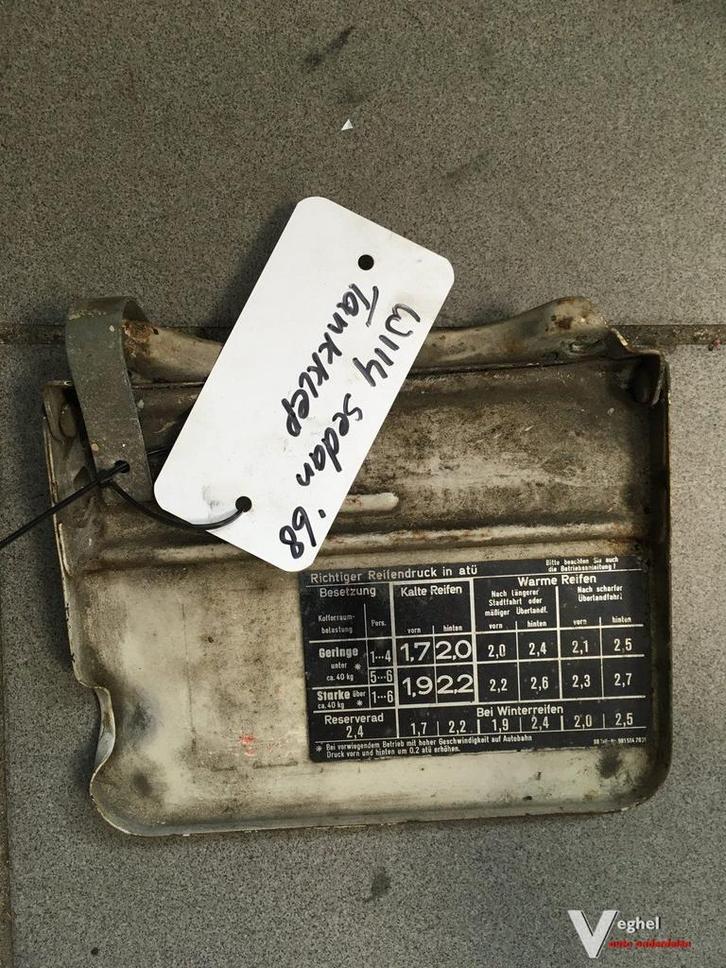 W114 sedan '68
Tankklep
Richtiger Reifendruck in atü
Bitte beachten Sie auch
die Betriebsanleitung !
Besetzung Kalte Reifen Warme Reifen
Nach längerer
Stadtfahrt oder
mäßiger Überlandf.
Nach scharfer
Überlandfahrt
Kofferraum-
belastung Pers. vorn hinten vorn hinten vorn hinten
Geringe
unter *
ca. 40 kg
1...4 1,7 2,0 2,0 2,4 2,1 2,5
5...6 1,9 2,2 2,2 2,6 2,3 2,7
Starke über
ca. 40 kg * 1...6
Reserverad
2,4
Bei Winterreifen
1,7 2,2 1,9 2,4 2,0 2,5
* Bei vorwiegendem Betrieb mit hoher Geschwindigkeit auf Autobahn
Druck vorn und hinten um 0,2 atü erhöhen.
Veghel
auto onderdelen